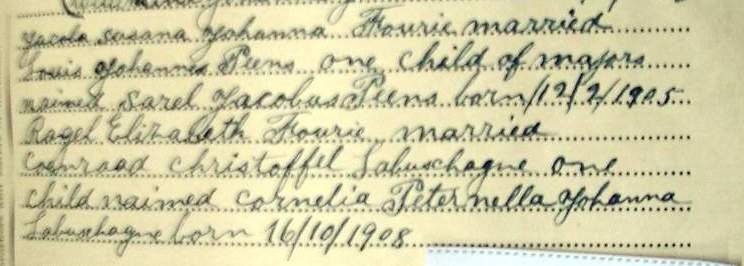 Jacoba Susana Johanna Fourie married
Louis Johannes Peens one child of majors
naimed Sarel Jacobus Peens born/12/2/1905
Ragel Elizabeth Fourie, married
Coenraad Christoffel Labuschagne one
child naimed Cornelia Peternella Johanna
Labuschagne born 16/10/1908